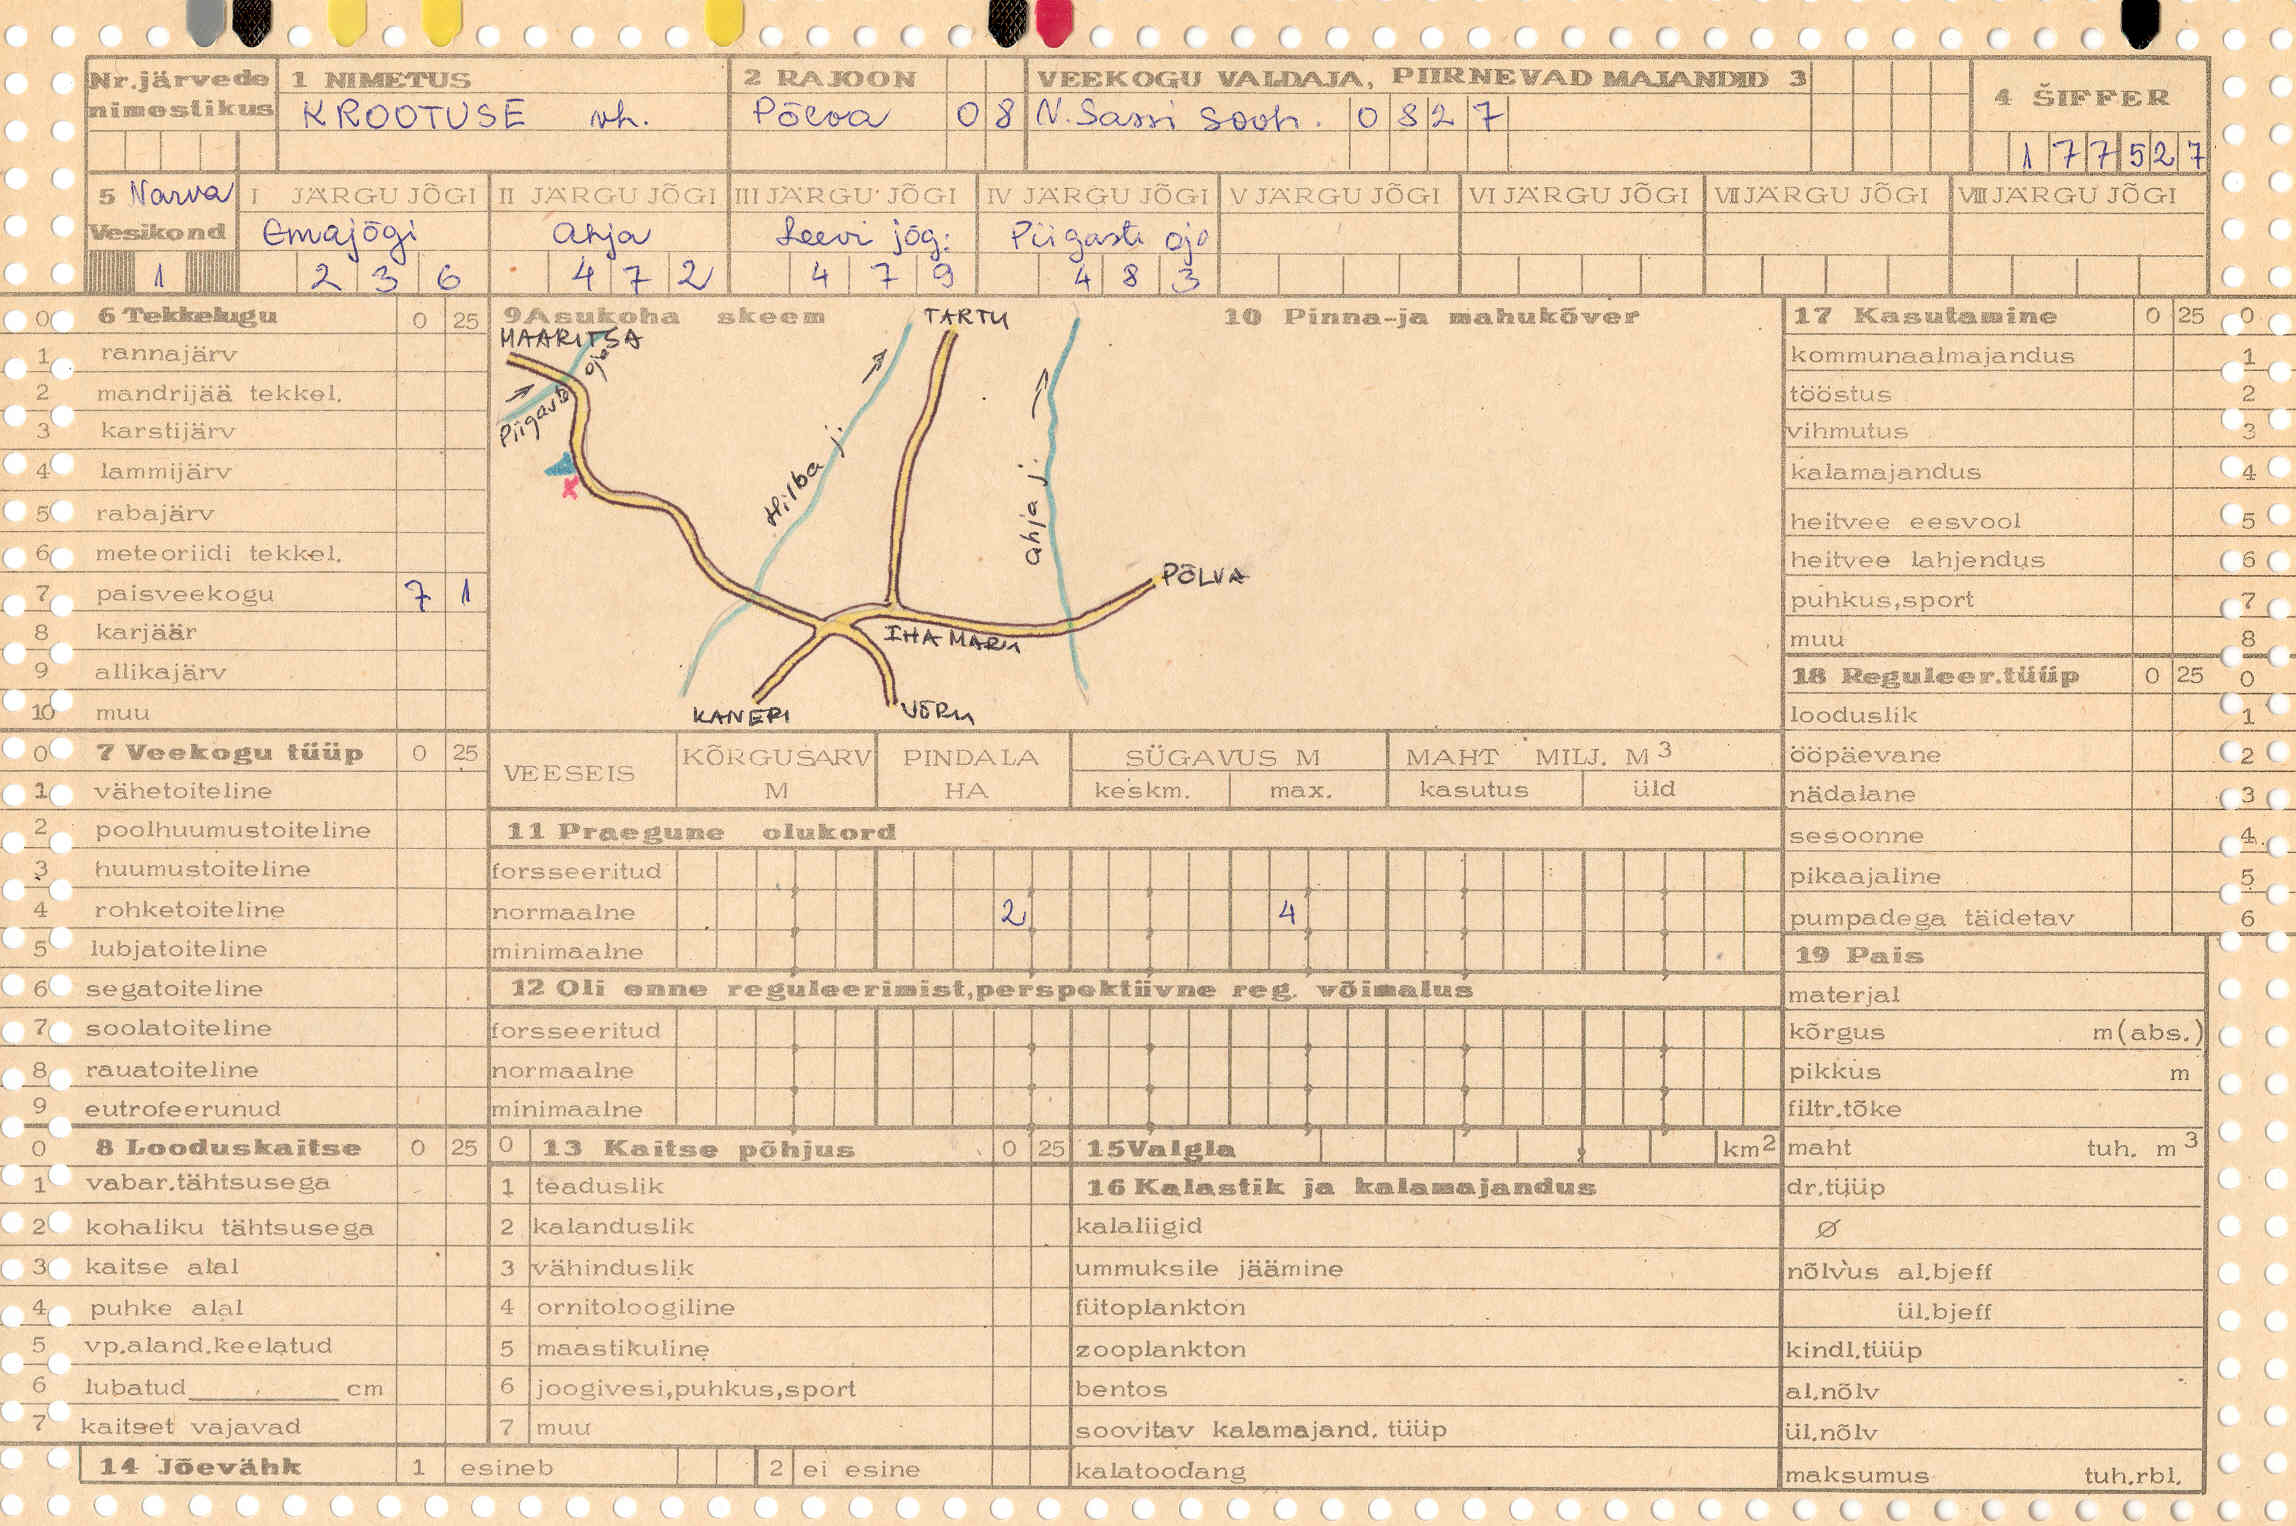 Nr.järvede nimestikus
1 NIMETUS
KROOTUSE vh.
2 RAJOON
Põlva 08
VEEKOGU VALDAJA, PIIRNEVAD MAJANDID 3
N. Sassi sovh. 0827
4 ŠIFFER
177527
5 Narva
Vesikond
1
I JÄRGU JÕGI
Emajõgi
236
II JÄRGU JÕGI
Ahja
472
III JÄRGU JÕGI
Leevi jõgi
479
IV JÄRGU JÕGI
Piigasti oja
483
V JÄRGU JÕGI
VI JÄRGU JÕGI
VII JÄRGU JÕGI
VIII JÄRGU JÕGI
0 6 Tekkelugu 0 25
1 rannajärv
2 mandrijää tekkel.
3 karstijärv
4 lammijärv
5 rabajärv
6 meteoriidi tekkel.
7 paisveekogu 7 1
8 karjäär
9 allikajärv
10 muu
0 7 Veekogu tüüp 0 25
1 vähetoiteline
2 poolhuumustoiteline
3 huumustoiteline
4 rohketoiteline
5 lubjatoiteline
6 segatoiteline
7 soolatoiteline
8 rauatoiteline
9 eutrofeerunud
0 8 Looduskaitse 0 25
1 vabar.tähtsusega
2 kohaliku tähtsusega
3 kaitse alal
4 puhke alal
5 vp.aland.keelatud
6 lubatud cm
7 kaitset vajavad
14 Jõevähk 1 esineb 2 ei esine
9 Asukoha skeem
MAARITSA
Piigasti oja
Hilba j.
TARTU
Ahja j.
PÕLVA
IHAMARU
KANEPI
VÕRU
10 Pinna-ja mahukõver
VEESEIS
KÕRGUSARV M
PINDALA HA
SÜGAVUS M
keskm. max.
MAHT MILJ. M3
kasutus üld
11 Praegune olukord
forsseeritud
normaalne 2 4
minimaalne
12 Oli enne reguleerimist,perspektiivne reg. võimalus
forsseeritud
normaalne
minimaalne
0 13 Kaitse põhjus 0 25
1 teaduslik
2 kalanduslik
3 vähinduslik
4 ornitoloogiline
5 maastikuline
6 joogivesi,puhkus,sport
7 muu
15 Valgla km2
16 Kalastik ja kalamajandus
kalaliigid
ummuksile jäämine
fütoplankton
zooplankton
bentos
soovitav kalamajand. tüüp
kalatoodang
17 Kasutamine 0 25 0
kommunaalmajandus 1
tööstus 2
vihmutus 3
kalamajandus 4
heitvee eesvool 5
heitvee lahjendus 6
puhkus,sport 7
muu 8
18 Reguleer.tüüp 0 25 0
looduslik 1
ööpäevane 2
nädalane 3
sesoonne 4
pikaajaline 5
pumpadega täidetav 6
19 Pais
materjal
kõrgus m(abs.)
pikkus m
filtr.tõke
maht tuh. m3
dr.tüüp
Ø
nõlvus al.bjeff
ül.bjeff
kindl.tüüp
al.nõlv
ül.nõlv
maksumus tuh.rbl.